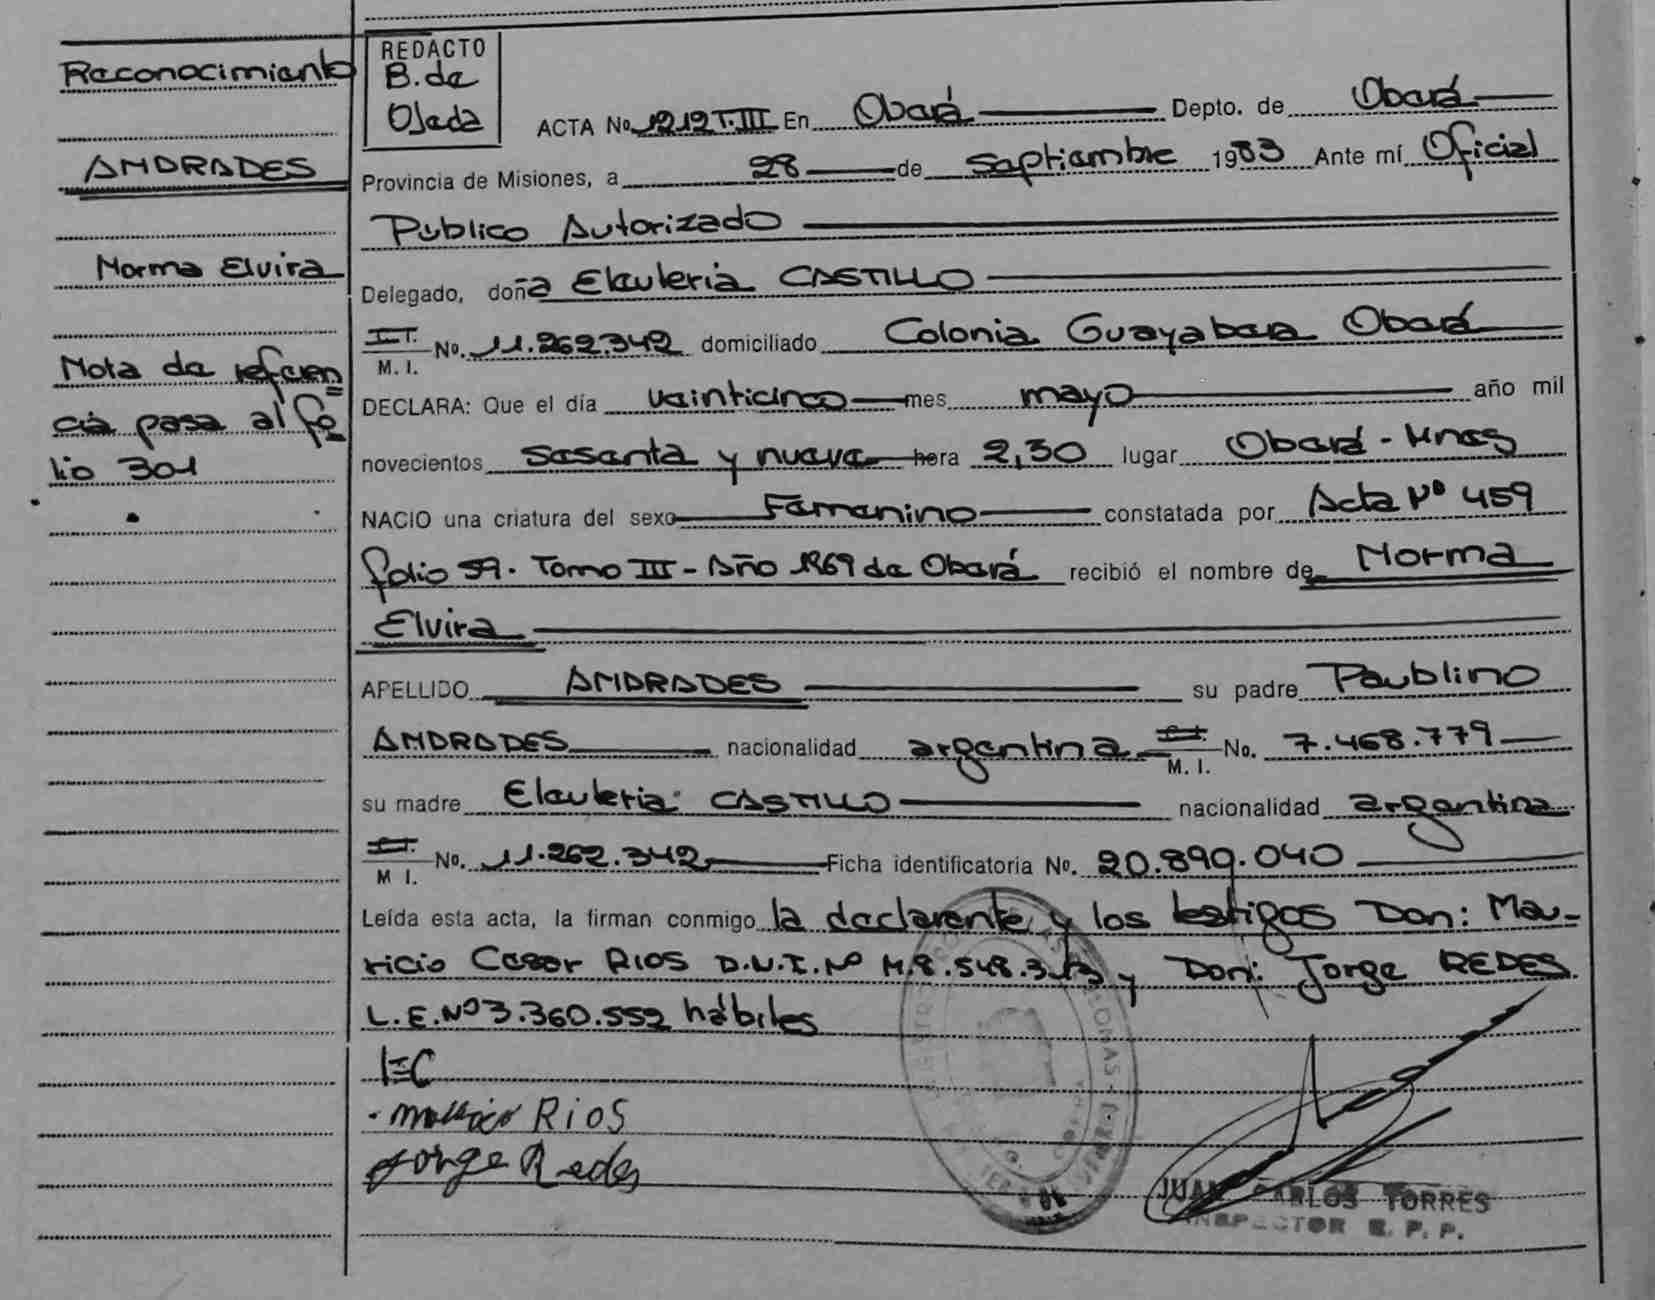 Reconocimiento
ANDRADES
Norma Elvira
Nota de referen
cia pasa al fo
lio 301
REDACTO
B. de
Ojeda
ACTA No. 1212 T. III En Oberá Depto. de Oberá
Provincia de Misiones, a 28 de Septiembre 1983 Ante mí Oficial
Publico Autorizado
Delegado, doña Eleuteria CASTILLO
I.T. M. I. No. 11.262.342 domiciliado Colonia Guayabera Oberá
DECLARA: Que el día veinticinco mes mayo año mil
novecientos sesenta y nueve hora 2,30 lugar Oberá - Mnes
NACIO una criatura del sexo Femenino constatada por Acta Nº 459
folio 59. Tomo III - Año 1969 de Oberá recibió el nombre de Norma
Elvira
APELLIDO ANDRADES su padre Paublino
ANDRADES nacionalidad argentina M. I. No. 7.468.779
su madre Eleuteria CASTILLO nacionalidad argentina
M I. No. 11.262.342 Ficha identificatoria No. 20.899.040
Leída esta acta, la firman conmigo la declarente y los testigos Don: Mau-
ricio Cesar RIOS D.N.I. Nº M.8.548.3 y Don: Jorge REDES
L.E. Nº 3.360.552 hábiles
IEC
Mauricio RiOS
Jorge Redes
JUAN CARLOS TORRES
INSPECTOR R. P. P.